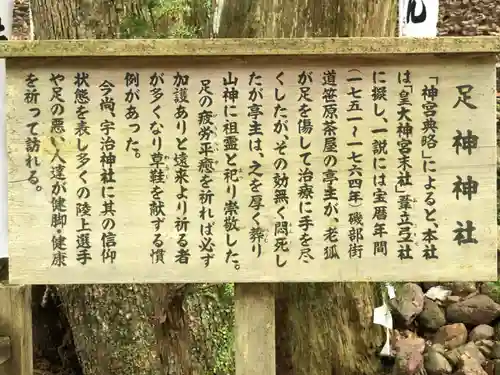 足神神社
「神宮典略」によると、本社
は「皇大神宮末社」葦立弖社
に擬し、一説には宝暦年間
（一七五一〜一七六四年）磯部街
道笹原茶屋の亭主が、老狐
が足を傷して治療に手を尽
くしたが、その効無く悶死し
たが亭主は、之を厚く葬り
山神に祖霊と祀り崇敬した。
足の疲労平癒を祈れば必ず
加護ありと遠来より祈る者
が多くなり草鞋を献ずる慣
例があった。
今尚、宇治神社に其の信仰
状態を表し多くの陸上選手
や足の悪い人達が健脚・健康
を祈って訪れる。